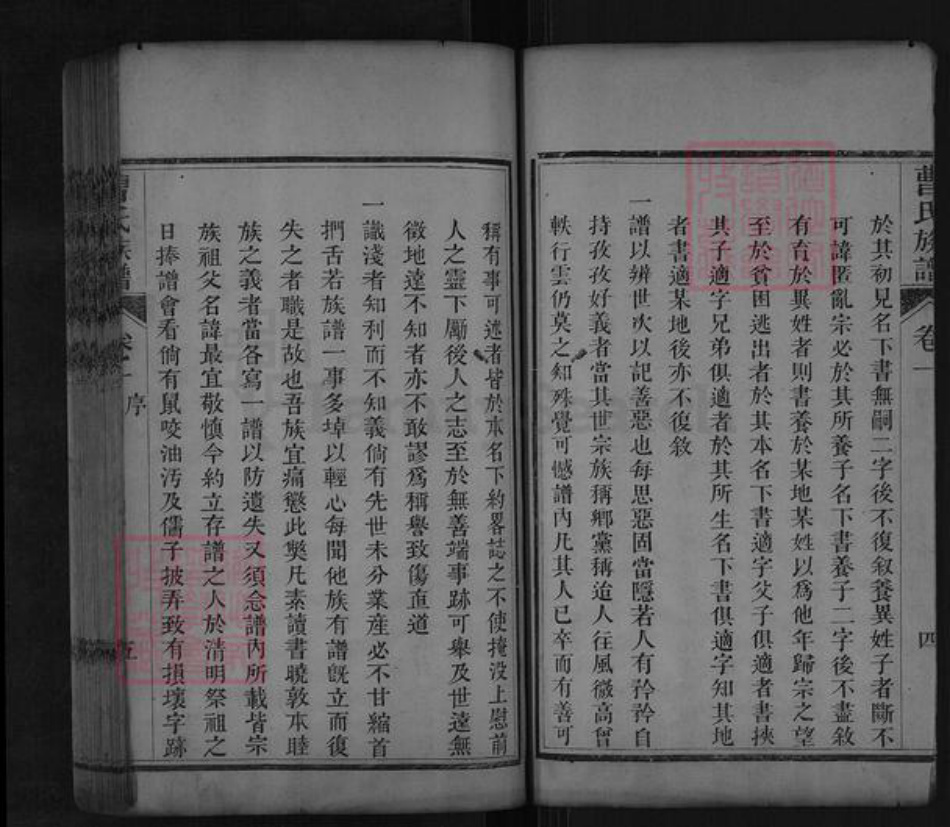 曹氏族譜
卷一
四
於其初見名下書無嗣二字後不復叙養異姓子者斷不
可諱匿亂宗必於其所養子名下書養子二字後不盡敘
有育於異姓者則書養於某地某姓以爲他年歸宗之望
至於貧困逃出者於其本名下書適字父子俱適者書挾
其子適字兄弟俱適者於其所生名下書俱適字知其地
者書適某地後亦不復敘
一譜以辨世次以記善惡也每思惡固當隱若人有矜矜自
持孜孜好義者當其世宗族稱鄉黨稱迨人往風微高曾
軼行雲仍莫之知殊覺可憾譜内凡其人已卒而有善可
稱有事可述者皆於本名下約畧誌之不使掩没上慰前
人之靈下厲後人之志至於無善端事跡可舉及世遠無
徵地遠不知者亦不敢謬爲稱譽致傷直道
一識淺者知利而不知義倘有先世未分業産必不甘縮首
捫舌若族譜一事多埠以輕心每聞他族有譜旣立而復
失之者職是故也吾族宜痛懲此獘凡素讀書曉敦本睦
族之義者當各寫一譜以防遺失又須念譜内所載皆宗
族祖父名諱最宜敬慎今約立存譜之人於清明祭祖之
日捧譜會看倘有鼠咬油汚及儒子披弄致有損壞字跡
曹氏族譜
卷一
序
五